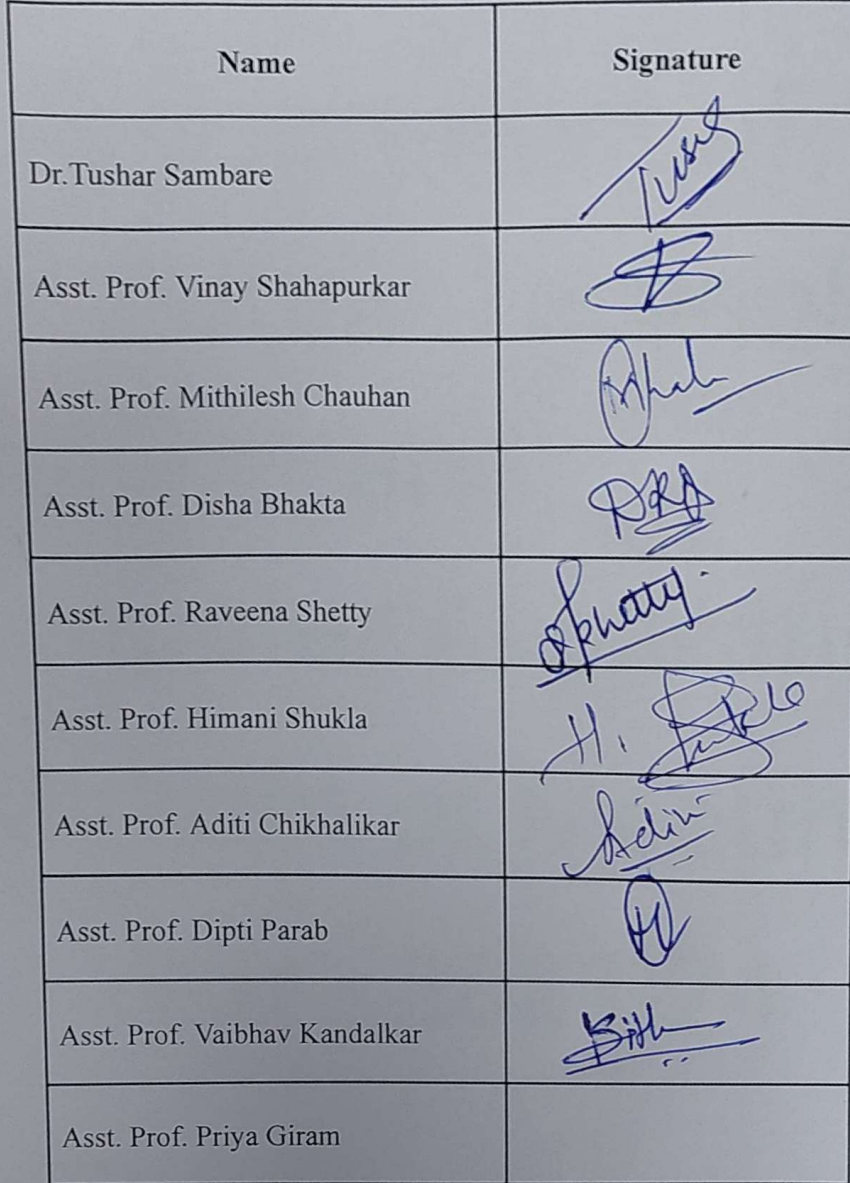 Name Signature
Dr.Tushar Sambare
Asst. Prof. Vinay Shahapurkar
Asst. Prof. Mithilesh Chauhan
Asst. Prof. Disha Bhakta
Asst. Prof. Raveena Shetty
Asst. Prof. Himani Shukla
Asst. Prof. Aditi Chikhalikar
Asst. Prof. Dipti Parab
Asst. Prof. Vaibhav Kandalkar
Asst. Prof. Priya Giram